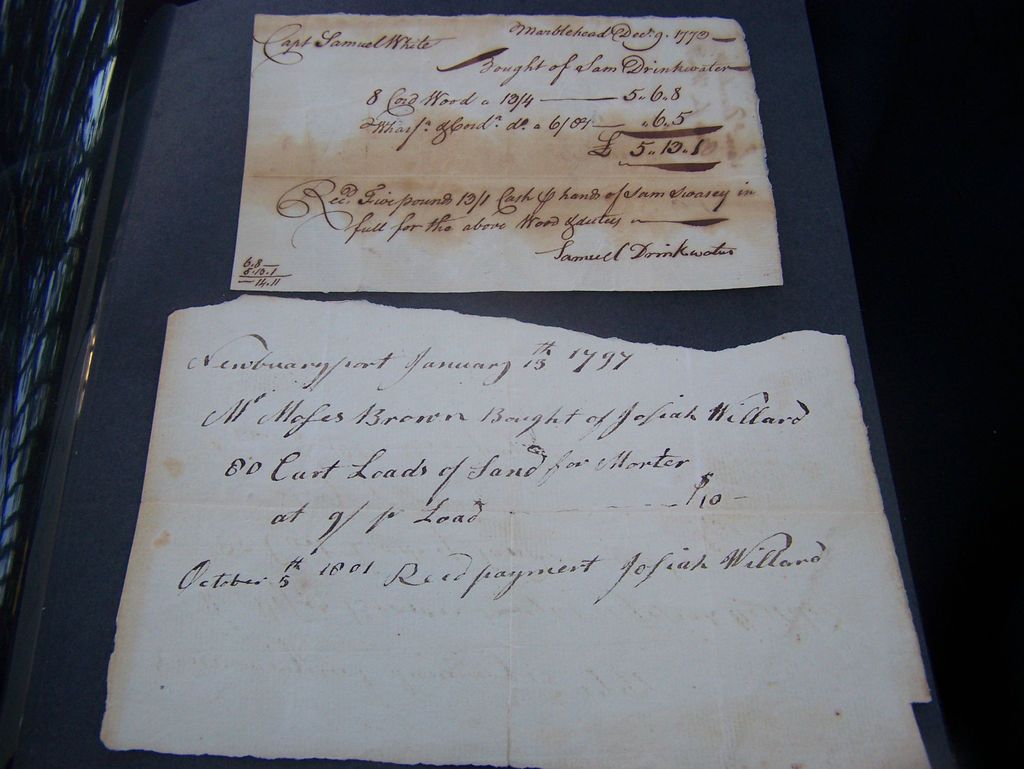 Marblehead Decr. 9. 1773
Capt Samuel White
Bought of Sam Drinkwater
8 Cord Wood a 13/4 — 5..6..8
Wharfa. & Cord.a do. a 6/8d — ..6..5
£ 5..13..1
Recd. Five pound 13/1 Cash hands of Sam Swasey in
full for the above Wood & duties
Samuel Drinkwater
6.8
14.11
Newbuaryport January 13th 1797
Mr Moses Brown Bought of Josiah Willard
80 Cart Loads of Sand for Morter
at 9/ pr Load $10 —
October 5th 1801 Recd payment Josiah Willard